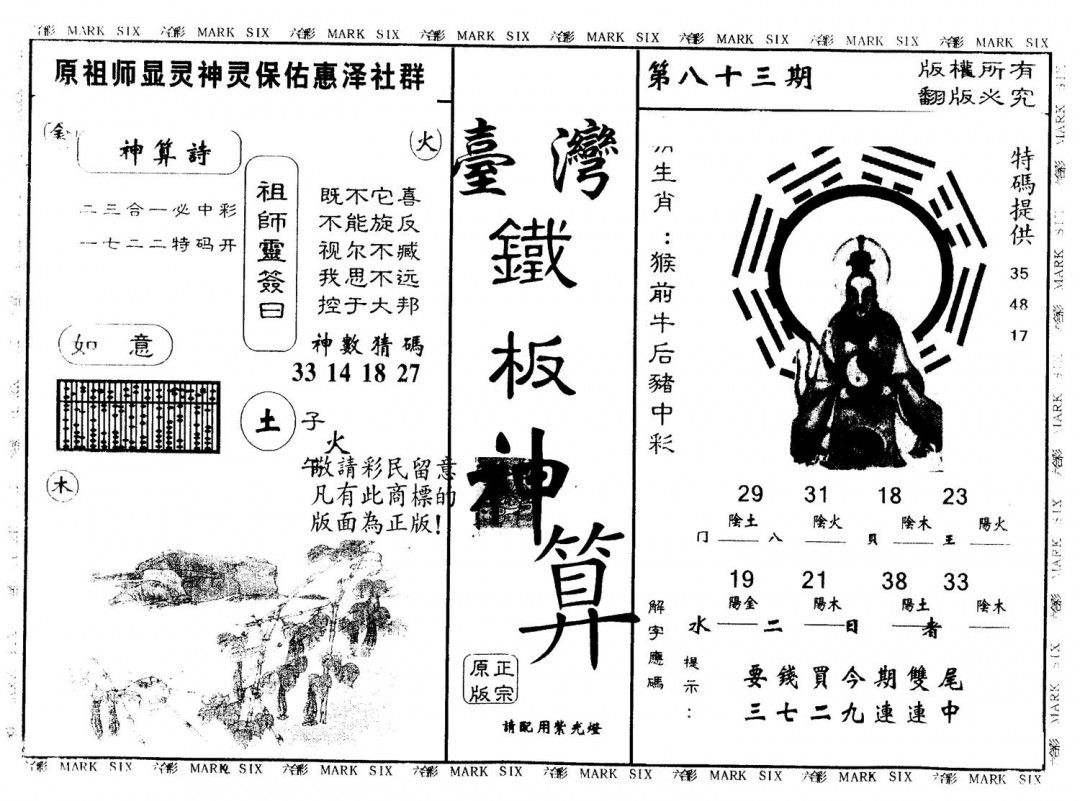 六合彩 MARK SIX 六合彩 MARK SIX 六合彩 MARK SIX 六合彩 MARK SIX 六合彩 MARK SIX 六合彩 MARK SIX 六合彩 MARK SIX 六合彩 MARK SIX
原祖师显灵神灵保佑惠泽社群
金
神算詩
火
二三合一必中彩
一七二二特码开
祖師靈簽曰
既不它喜
不能旋反
视尔不臧
我思不远
控于大邦
如意
神數猜碼
33 14 18 27
土
子
火
午
木
敬請彩民留意
凡有此商標的
版面為正版!
臺灣
鐵板神算
正宗
原版
請配用紫光燈
第八十三期
版權所有
翻版必究
生肖:猴前牛后豬中彩
特碼提供
35
48
17
29 31 18 23
陰土 陰火 陰木 陽火
门 八 貝 王
19 21 38 33
陽金 陽木 陽土 陰木
水 二 日 者
解字應碼
提示:
要錢買今期雙尾
三七二九連連中
六合彩 MARK SIX 六合彩 MARK SIX 六合彩 MARK SIX 六合彩 MARK SIX 六合彩 MARK SIX 六合彩 MARK SIX 六合彩 MARK SIX 六合彩 MARK SIX